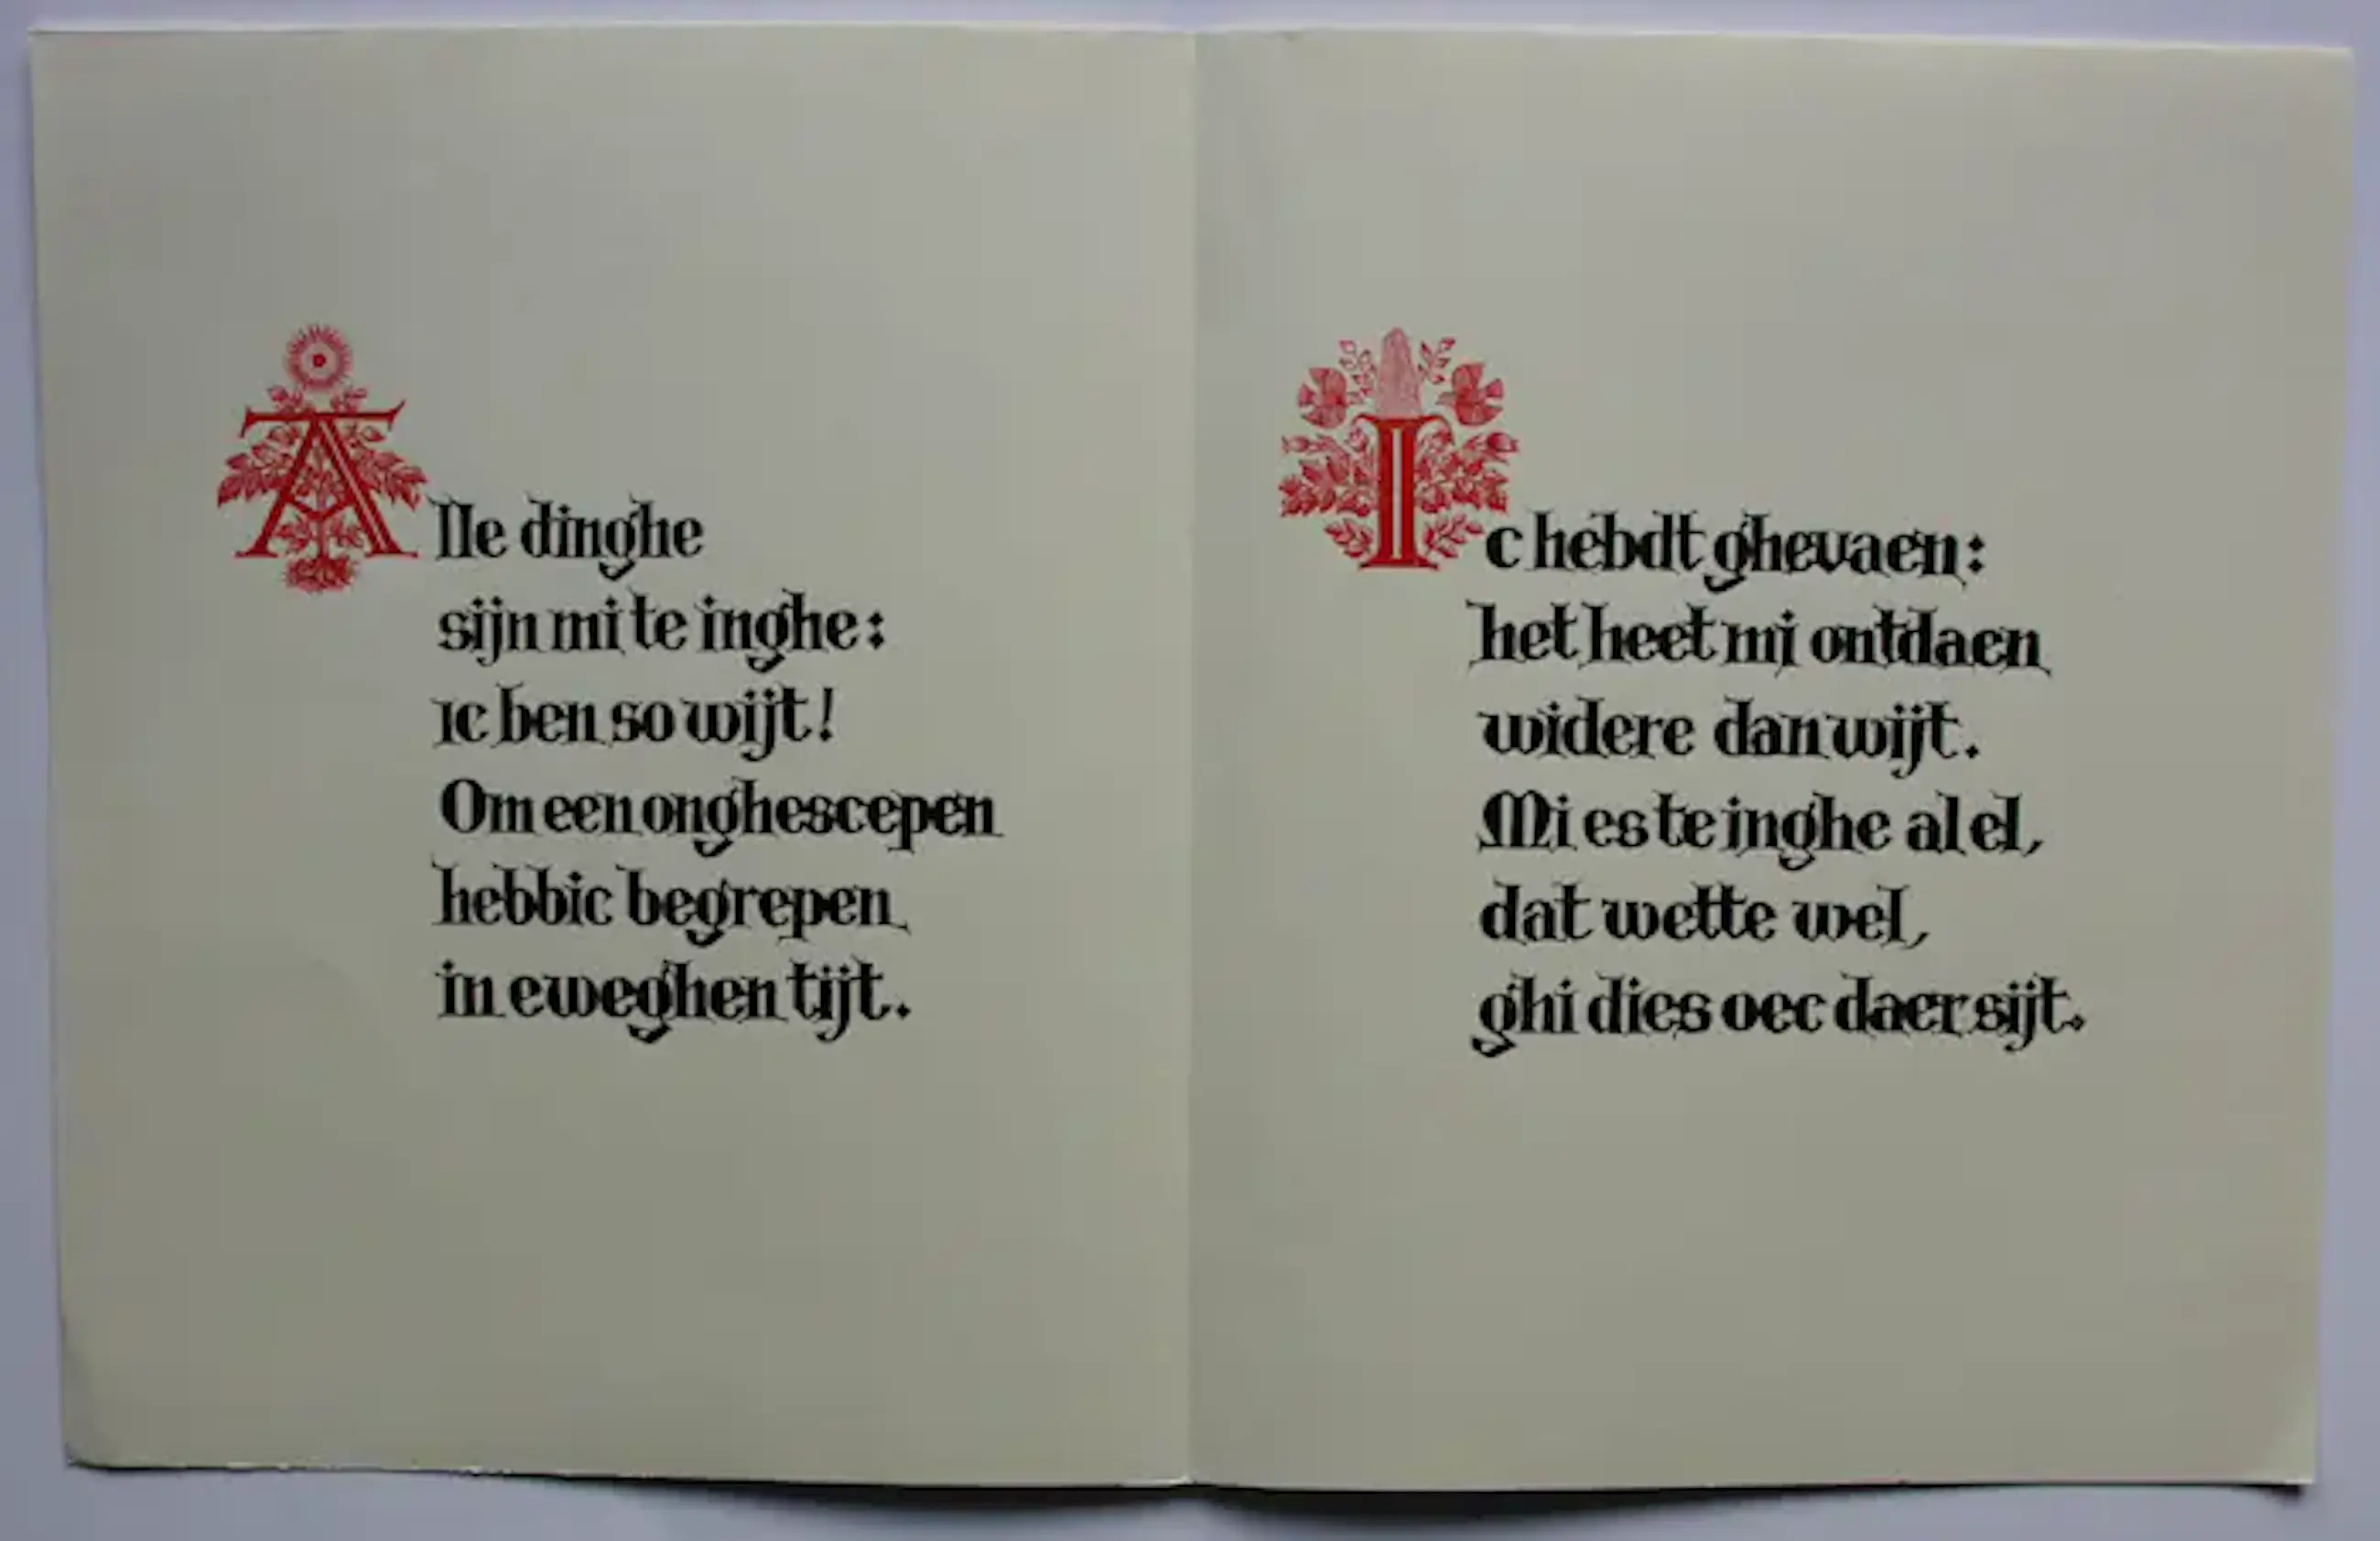 Alle dinghe
sijn mi te inghe:
ic ben so wijt!
Om een onghescepen
hebbic begrepen
in eweghen tijt.
Ic hebdt ghevaen:
het heet mi ontdaen
widere dan wijt.
Mi es te inghe al el,
dat wette wel,
ghi dies oec daer sijt.